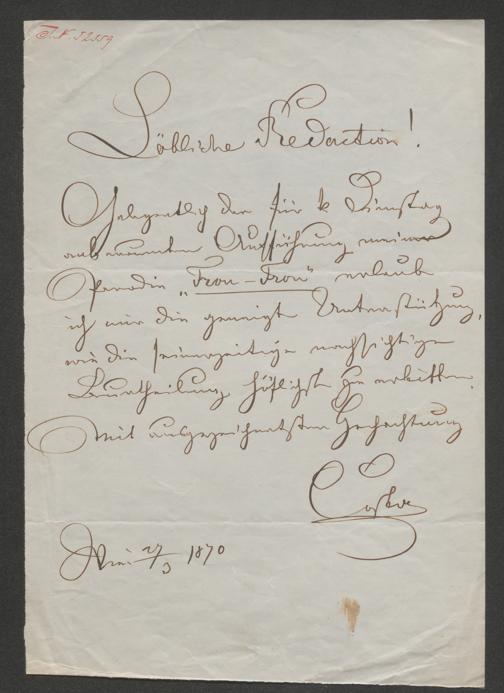 J.N. 52559
Löbliche Redaction!
Gelegentlich der für k. Dienstag
anberaumten Aufführung meiner
Parodie „Frou-Frou" erlaube
ich mir die geneigte Unterstützung,
wie die seinerzeitige nachsichtige
Beurtheilung höflichst zu erbitten.
Mit ausgezeichnetster Hochachtung
Costa
Wien 27/3 1870